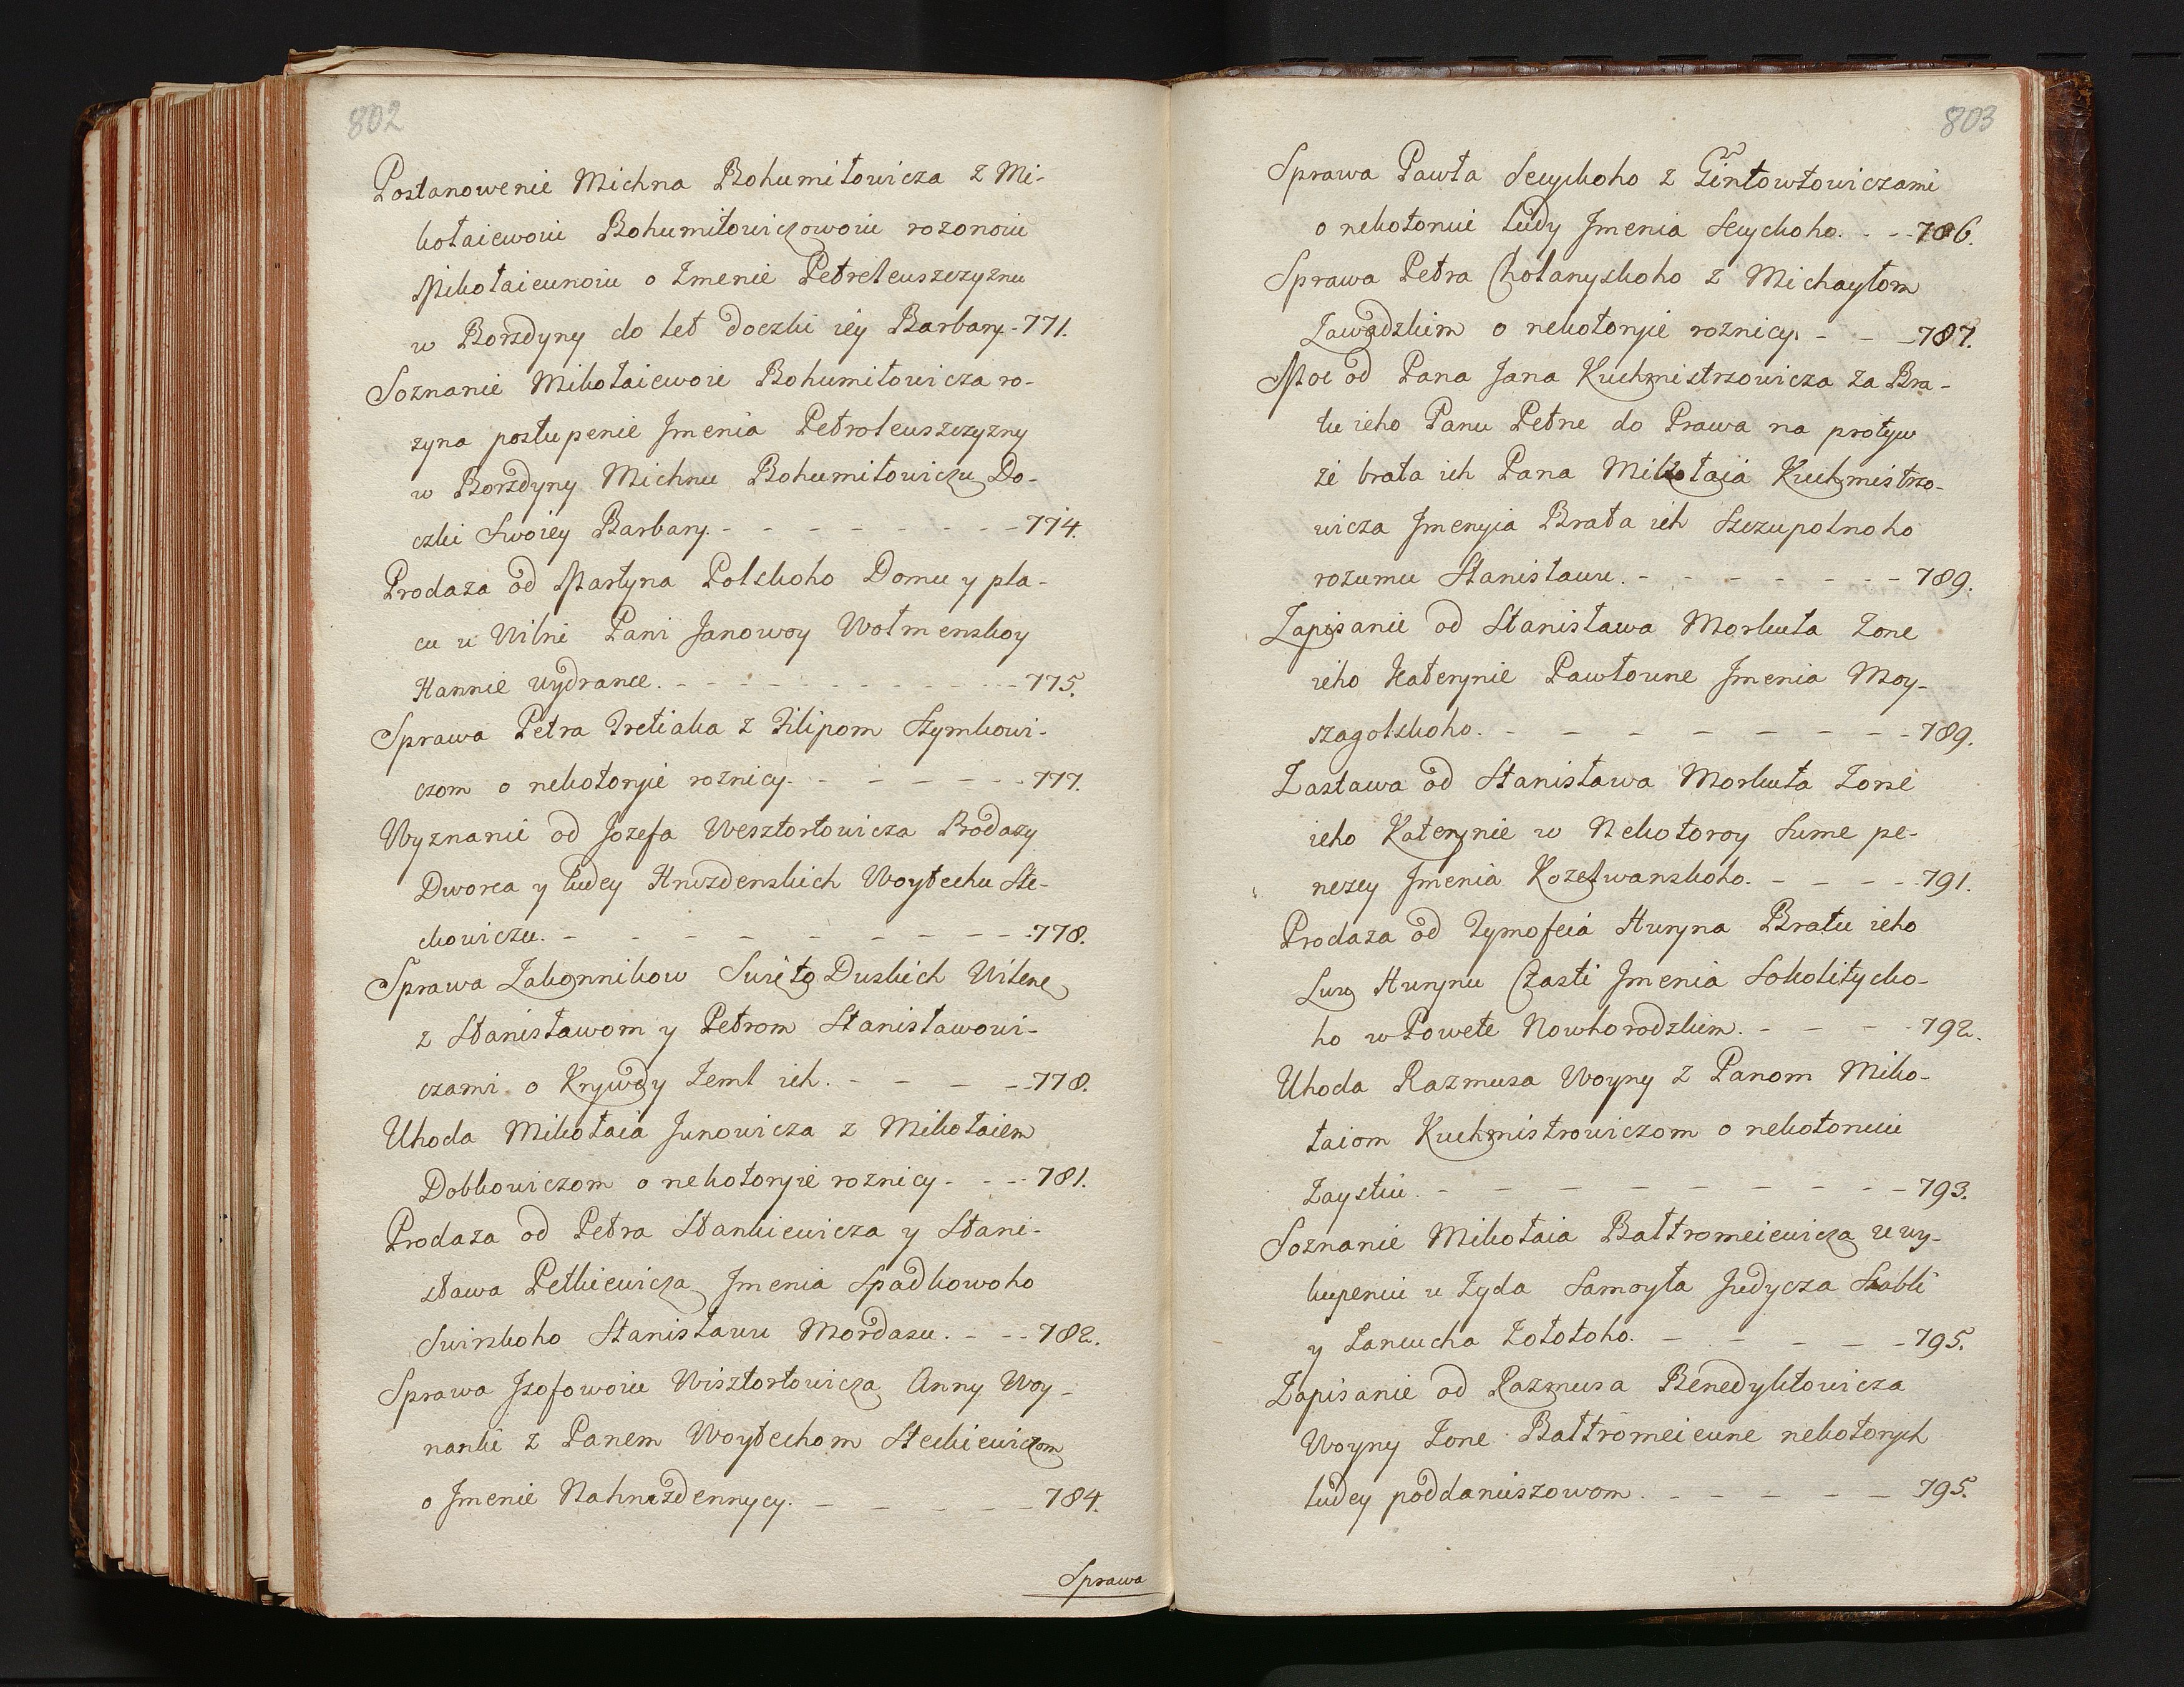 802
Postanowenie Michna Bohumiłowicza z Mi-
kołaiewoiu Bohumiłowiczowoiu rozonoiu
Mikołaieunoiu o Imenie Petreleuszczyznu
w Borzdyny do let doczki iey Barbary - 771.
Soznanie Mikołaiewoie Bohumiłowicza ro-
zyna postupenie Jmenia Petroleuszczyzny
w Borzdyny Michnu Bohumiłowiczu Do-
czki Swoiey Barbary. - - - - - - - - 774.
Prodaza od Martyna Polskoho Domu y pla-
cu u Wilni Pani Janowoy Wołmenskoy
Hannie Wydrance. - - - - - - - - - - - 775.
Sprawa Petra Tretiaka z Filipom Szymkowi-
czom o nekotoryie roznicy. - - - - - - 777.
Wyznanie od Jozefa Wesztortowicza Prodazy
Dworca y ludey Hnezdenskich Woytechu Ste-
ckowiczu. - - - - - - - - - 778.
Sprawa Zakonnikow Swięto Duskich Wilene
z Stanisławom y Petrom Stanisławowi-
czami o Krywdy Zeml ich. - - - - 778.
Uhoda Mikołaia Junowicza z Mikołaiem
Dobkowiczom o nekotoryie roznicy - - - 781.
Prodaza od Petra Stankiewicza y Stani-
sława Petkiewicza Jmenia Spadkowoho
Swirskoho Stanisławu Mordasu. - - - 782.
Sprawa Jzofowoiu Wisztortowicza Anny Woy-
nanki z Panem Woytechom Steckiewiczom
o Jmenie Nahnezdennycy. - - - - - 784.
Sprawa
803
Sprawa Pawła Seuyckoho z Gintowtowiczami
o nekotoruie ludy Jmenia Seuyckoho. - - - 786.
Sprawa Petra Chołanyskoho z Michayłom
Zawadzkim o nekotoryie roznicy. - - - 787.
Moc od Pana Jana Kuchmistrzowicza za Bra-
tu ieho Panu Petne do Prawa na protyw
że brata ich Pana Mikołaia Kuchmistrzo-
wicza Jmenyia Brata ich Szczupolnoho
rozumu Stanisławu. - - - - - - - 789.
Zapisanie od Stanisława Morkuta Zone
ieho Katerynie Pawłowne Jmenia Moy-
szagolskoho. - - - - - - - - - 789.
Zastawa od Stanisława Morkuta Zone
ieho Katerynie w Nekotoroy Sume pe-
nezey Jmenia Kozelwanskoho. - - - - 791.
Prodaza od Tymofeia Huryna Bratu ieho
Lurą Hurynu Czasti Jmenia Sokolitycko-
ho w Powete Nowhorodzkim. - - - - 792.
Uhoda Razmusa Woyny z Panom Miko-
łaiom Kuchmistrowiczom o nekotoruiu
Zaystiu. - - - - - - - - - 793.
Soznanie Mikołaia Bałtromeiewicza u wy-
kupeniu u Zyda Samoyła Judycza Szabli
y Łancucha Zołotoho. - - - - - 795.
Zapisanie od Razmusa Benedyktowicza
Woyny Zone Bałtromeieune nekotorych
ludey poddaniuszowom. - - - - - - 795.